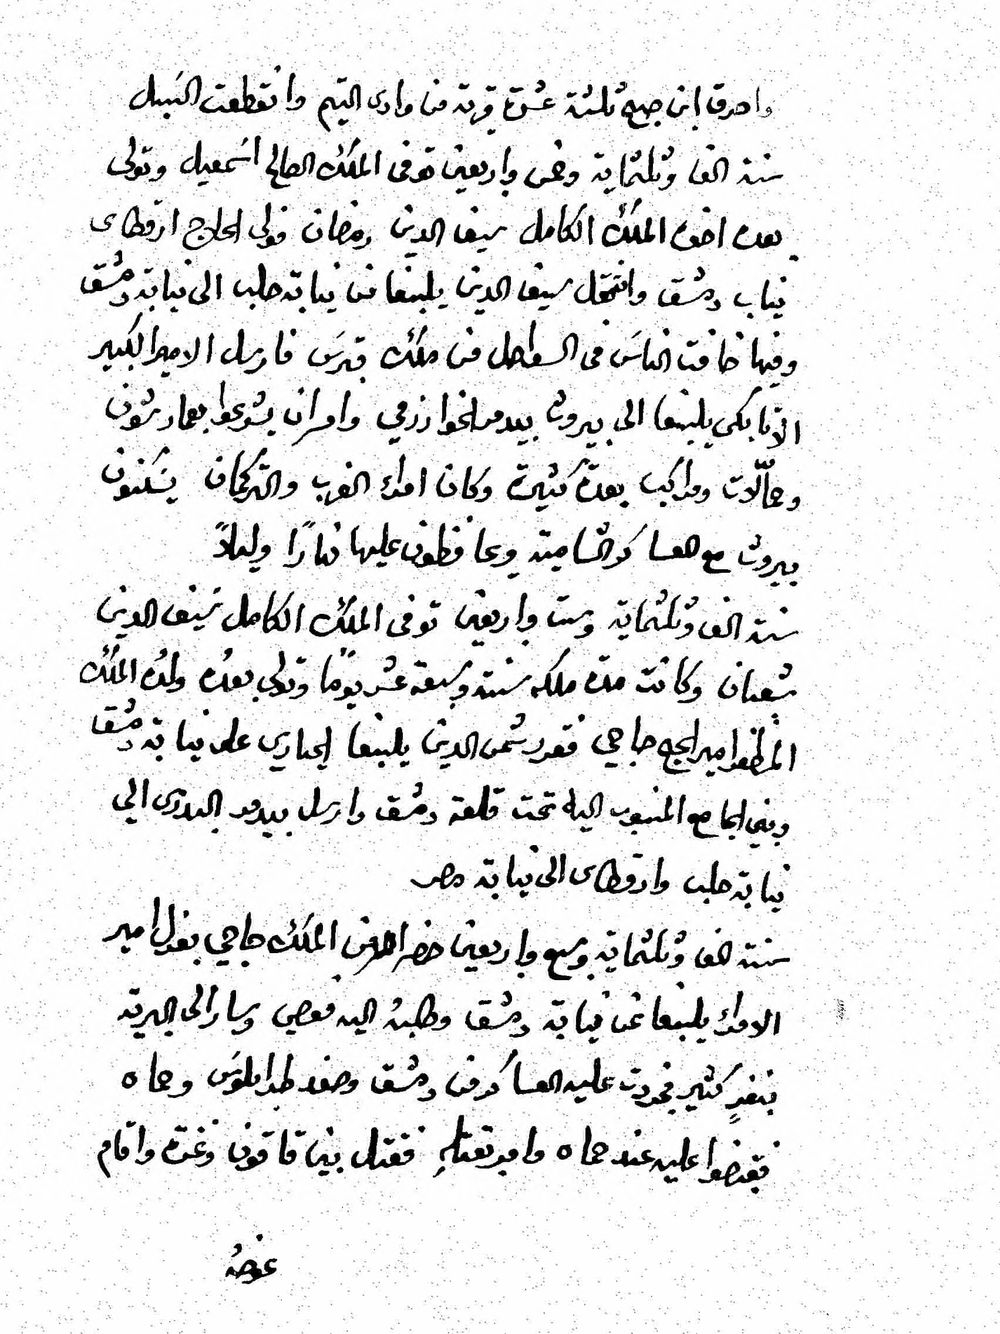 واحرق ابن صبح ثلثة عشرة قرية من وادي التيم وانقطعت السبل
سنة الف وثلثماية وخمس واربعين توفي الملك الصالح اسمعيل وتولى
بعده اخوه الملك الكامل سيف الدين رمضان فولى الحاج ارقطاى
نياب دمشق وانتقل سيف الدين يلبغا من نيابة حلب الى نيابة دمشق
وفيها خافت الناس في السواحل من ملك قبرس فارسل الامير الكبير
الاتابكي يلبغا الى بيروت بيدمر الخوارزمي وامر ان يشرعوا بعمار شون
وحمّالات ومراكب بعدة كثيرة وكان امراء الغرب والتركمان يسكنون
بيروت مع العساكر الشامية ويحافظون عليها نهارًا وليلاً
سنة الف وثلثماية وست واربعين توفي الملك الكامل سيف الدين
شعبان وكانت مدة ملكه سنة وسبعة عشر يومًا وتولى بعده ولده الملك
المظفر امير الحج حاجي فقرر شمس الدين يلبغا اليحياوي على نيابة دمشق
وبني الجامع المنسوب اليه تحت قلعة دمشق وارسل بيدمر البدري الي
نيابة حلب وارقطاى الى نيابة مصر
سنة الف وثلثماية وسبع واربعين حضر امر من الملك حاجي بعزل امير
الامراء يلبغا عن نيابة دمشق وطلبه اليه فعصي وسار الى البرية
بنفرٍ كثير فجردت عليه العساكر من دمشق وصفد وطرابلوس وحماه
فقبضوا عليه عند حماه وامر بقتلهِ فقتل بين قاقون وغزه واقام
عوضهُ